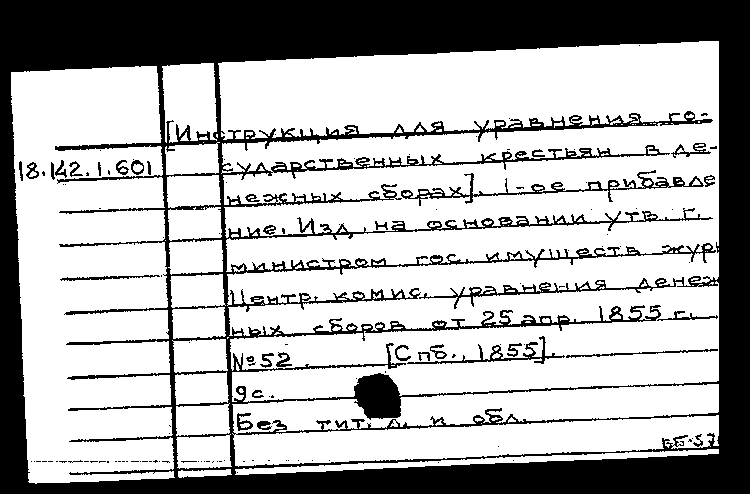 [Инструкция для уравнения го-
18.142.1.601 сударственных крестьян в де-
нежных сборах]. 1-ое прибавле
ние. Изд. на основании утв. г.
министром гос. имуществ жур
Центр. комис. уравнения денеж
ных сборов от 25 апр. 1855 г.
№ 52. [Спб., 1855].
9 с.
Без тит. л. и обл.